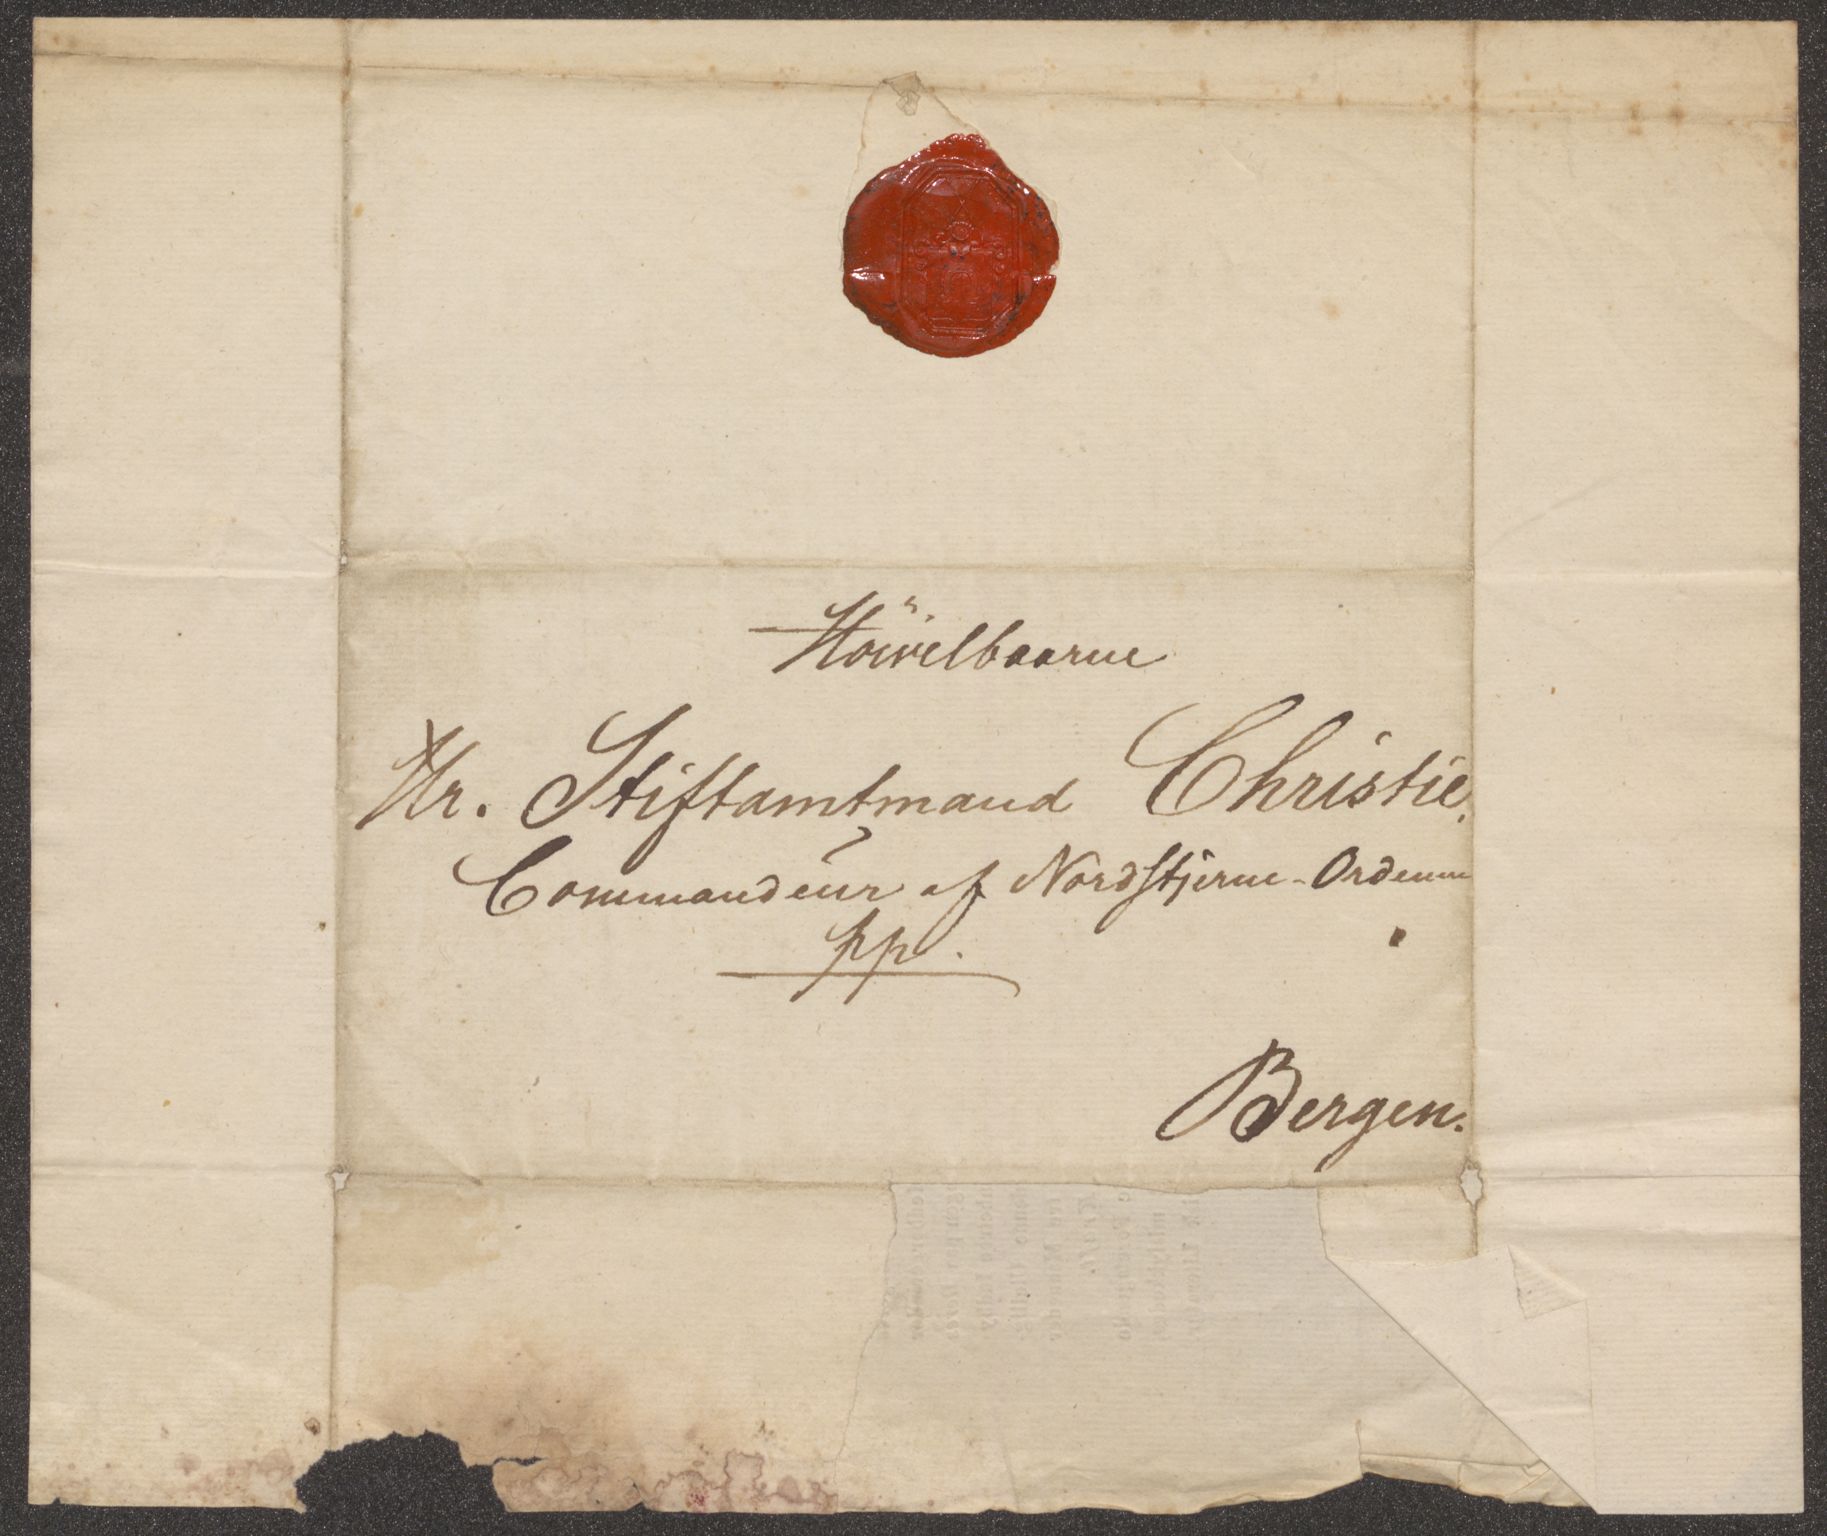 Höivelbaarne
Hr. Stiftamtmand Christie,
Commandeur af Nordstjerne-Ordenen
pp.
Bergen.